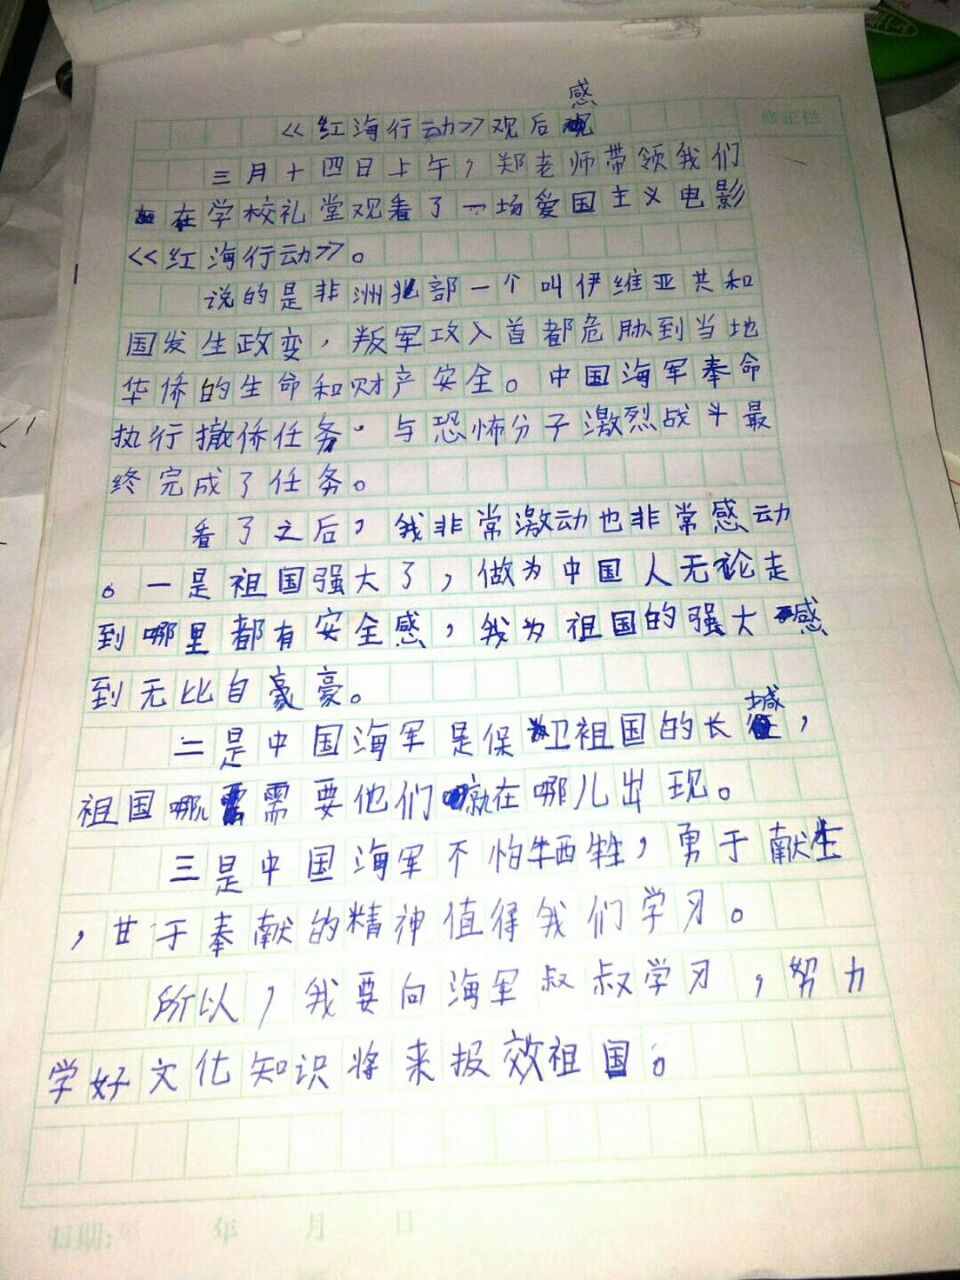 《红海行动》观后感
修正栏
三月十四日上午，郑老师带领我们
在学校礼堂观看了一场爱国主义电影
《红海行动》。
说的是非洲北部一个叫伊维亚共和
国发生政变，叛军攻入首都危胁到当地
华侨的生命和财产安全。中国海军奉命
执行撤侨任务·与恐怖分子激烈战斗最
终完成了任务。
看了之后，我非常激动也非常感动
。一是祖国强大了，做为中国人无论走
到哪里都有安全感，我为祖国的强大感
到无比自豪豪。
二是中国海军是保卫祖国的长城，
祖国哪儿需要他们就在哪儿出现。
三是中国海军不怕牺牲，勇于献生
，甘于奉献的精神值得我们学习。
所以，我要向海军叔叔学习，努力
学好文化知识将来报效祖国。
日期： 年 月 日